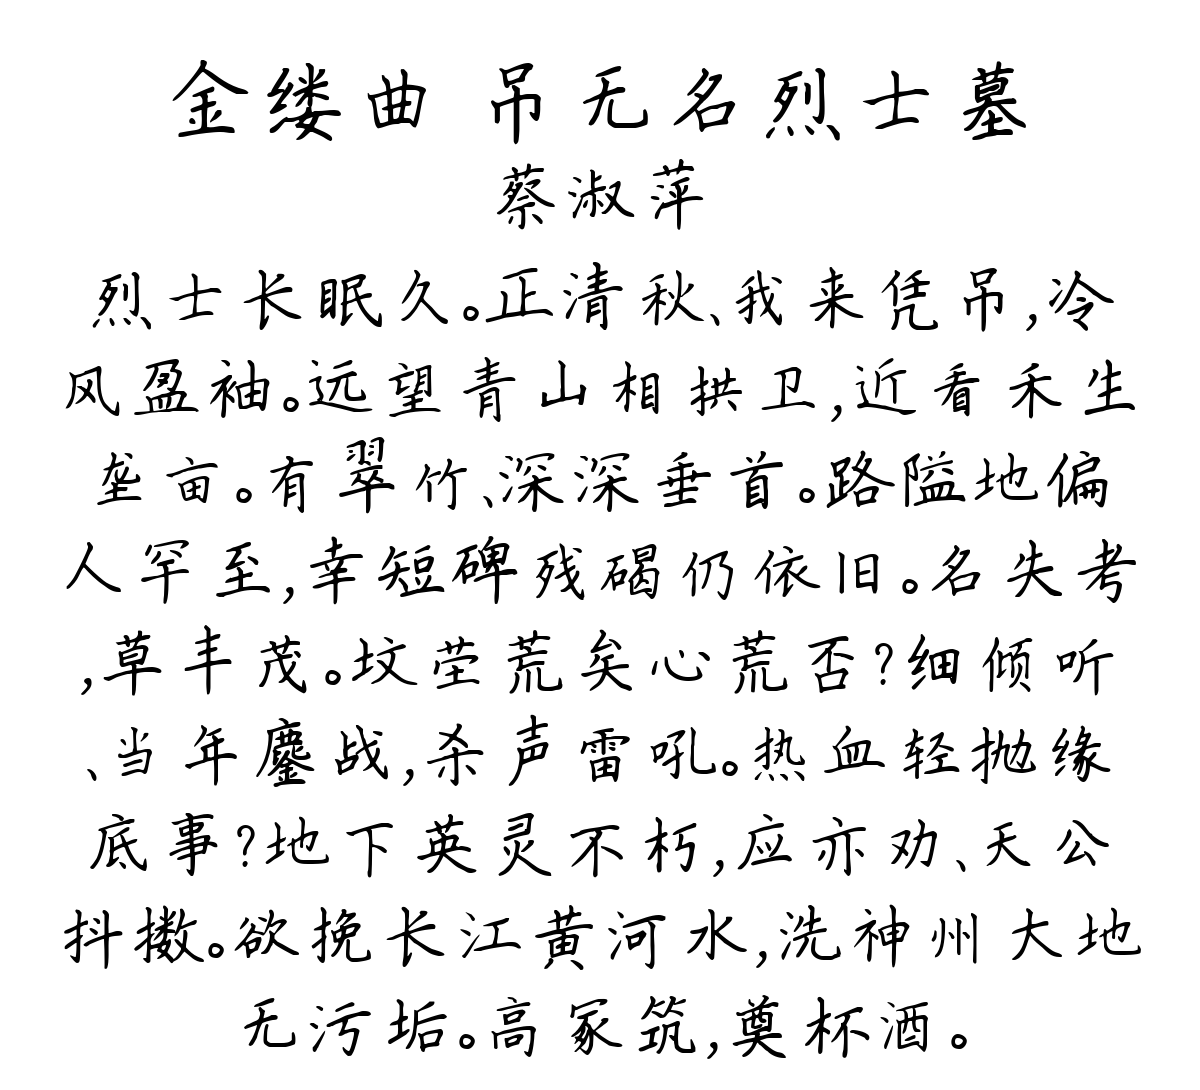 金缕曲 吊无名烈士墓
蔡淑萍
烈士长眠久。正清秋、我来凭吊,冷
风盈袖。远望青山相拱卫,近看禾生
垄亩。有翠竹、深深垂首。路隘地偏
人罕至,幸短碑残碣仍依旧。名失考
,草丰茂。坟茔荒矣心荒否?细倾听
、当年鏖战,杀声雷吼。热血轻抛缘
底事?地下英灵不朽,应亦劝、天公
抖擞。欲挽长江黄河水,洗神州大地
无污垢。高冢筑,奠杯酒。